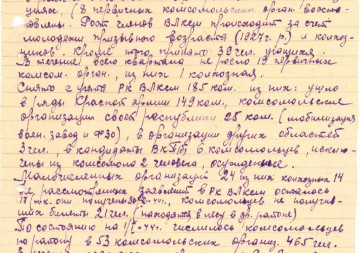 в первичных комсомольских орган. восста-
новлены. Рост членов ВЛКСМ происходит за счет
молодежи призывного возраста (1927г. р.) и колхоз-
ников. Кроме того, принято 39 чел. учащихся.
В течение всего квартала не росло 19 первичных
комсом. орган., из них 1 колхозная.
Снято с учета РК ВЛКСМ 185 ком. из них: ушло
в ряды Красной армии 149 ком., комсомольские
организации своей республики 25 ком. (мобилизация
воен. завод и ФЗО), в организации других областей
3 чел., в кандидаты ВКП(б) 6 комсомольцев, исклю-
чены из комсомола 2 человека, осужденные.
Малочисленных организаций 24 из них колхозных 14
не рассмотренных заявлений в РК ВЛКСМ осталось
17, комсомольцев не получив-
ших билеты 21 чел. (находятся в лесу в др. районе)
По состоянию на числилось комсомольцев
по району в 53 комсомольских организ. 465 чел.